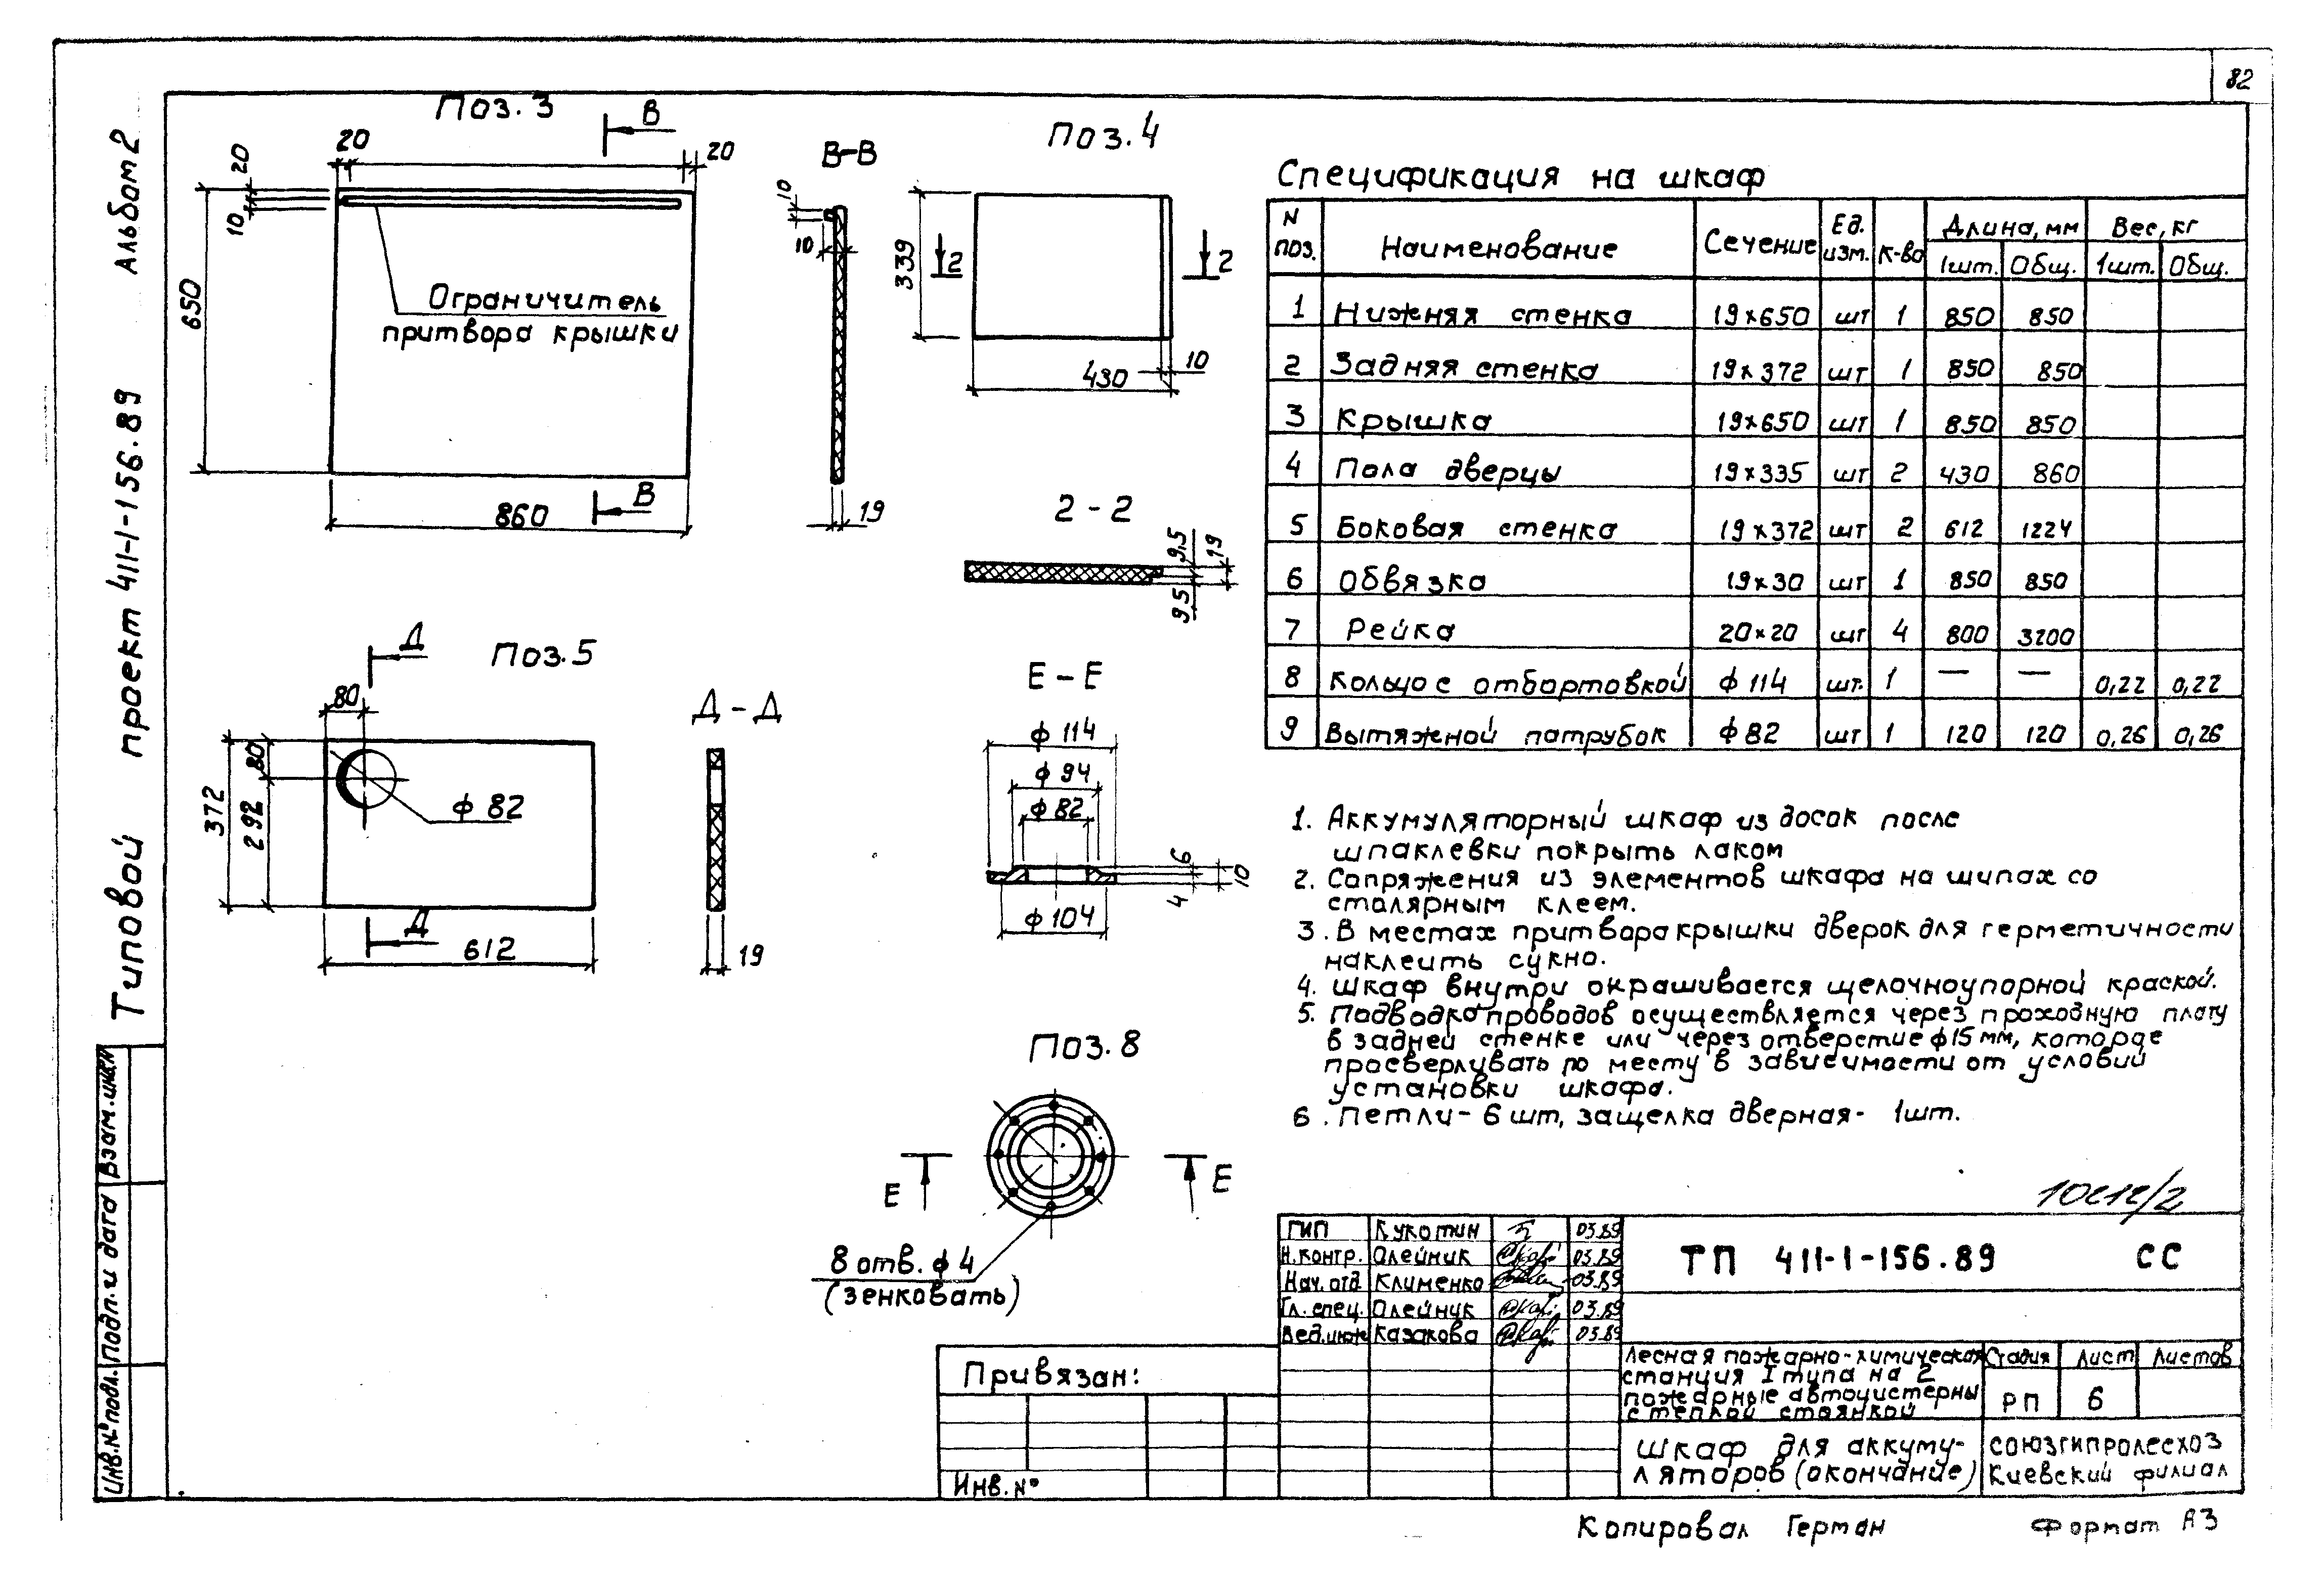 82
Альбом 2
Типовой проект 411-1-156.89
Взам.инв.№
Подп. и дата
Инв.№ подл.
Поз. 3
В
20
20
20
10
650
Ограничитель
притвора крышки
860
В
В-В
10
10
19
Поз. 4
339
2
2
430
10
2 - 2
9,5
19
9,5
Поз. 5
Д
80
80
372
292
ф 82
Д
612
Д - Д
19
Е - Е
ф 114
ф 94
ф 82
6
10
4
ф 104
Поз. 8
Е
Е
8 отв. ф 4
(зенковать)
Спецификация на шкаф
N поз. Наименование Сечение Ед. изм. К-во Длина, мм Вес, кг
1шт. Общ. 1шт. Общ.
1 Нижняя стенка 19×650 шт 1 850 850
2 Задняя стенка 19×372 шт 1 850 850
3 Крышка 19×650 шт 1 850 850
4 Пола дверцы 19×335 шт 2 430 860
5 Боковая стенка 19×372 шт 2 612 1224
6 Обвязка 19×30 шт 1 850 850
7 Рейка 20×20 шт 4 800 3200
8 Кольцо с отбортовкой ф 114 шт. 1 — — 0,22 0,22
9 Вытяжной патрубок ф 82 шт 1 120 120 0,26 0,26
1. Аккумуляторный шкаф из досок после
шпаклевки покрыть лаком
2. Сопряжения из элементов шкафа на шипах со
столярным клеем.
3. В местах притвора крышки дверок для герметичности
наклеить сукно.
4. Шкаф внутри окрашивается щелочноупорной краской.
5. Подводка проводов осуществляется через проходную плату
в задней стенке или через отверстие ф15 мм, которое
просверливать по месту в зависимости от условий
установки шкафа.
6. Петли - 6 шт, защелка дверная - 1шт.
ГИП Кукотин 03.89
Н.контр. Олейник 03.89
Нач.отд Клименко 03.89
Гл.спец. Олейник 03.89
Вед.инж Казакова 03.89
ТП 411-1-156.89 СС
Лесная пожарно-химическая
станция I типа на 2
пожарные автоцистерны
с теплой стоянкой
Стадия Лист Листов
РП 6
Шкаф для аккуму-
ляторов (окончание)
СОЮЗГИПРОЛЕСХОЗ
Киевский филиал
Привязан:
Инв. №
Копировал Герман
Формат А3